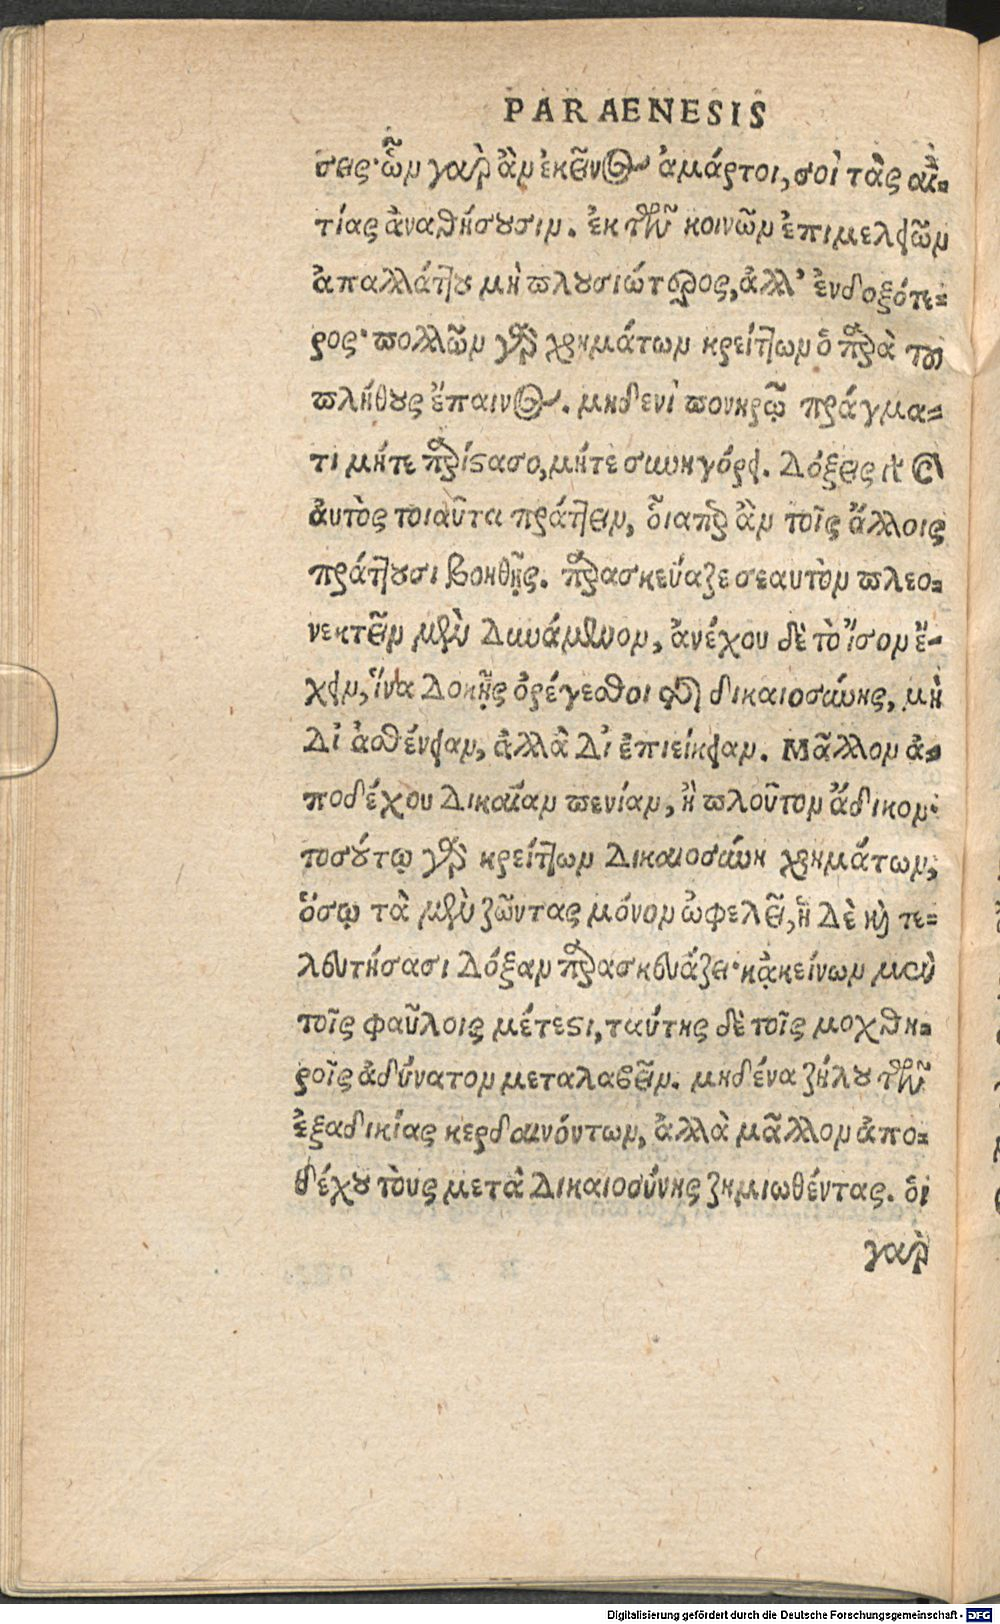 PARAENESIS
σεις· ὧν γαρ ἂν ἐκεῖνος ἁμάρτοι, σοὶ τὰς αἰ-
τίας ἀναθήσουσιν. ἐκ τῶν κοινῶν ἐπιμελειῶν
ἀπαλλάττου μὴ πλουσιώτερος, ἀλλ' ἐνδοξότε-
ρος· πολλῶν γὰρ χρημάτων κρείττων ὁ παρὰ του
πλήθους ἔπαινος. μηδενὶ πονηρῷ πράγμα-
τι μήτε παρίστασο, μήτε συνηγόρει. Δόξεις γὰρ καὶ
ἀυτὸς τοιαῦτα πράττειν, ὅιαπερ ἂν τοῖς ἄλλοις
πράττουσι βοηθῇς. παρασκεύαζε σεαυτὸν πλεο-
νεκτεῖν μὲν Δυνάμενον, ἀνέχου δὲ τὸ ἴσον ἔ-
χειν, ἵνα Δοκῇς ὀρέγεσθαι τῆς δικαιοσύνης, μὴ
Δι' ἀσθένειαν, ἀλλὰ Δι' ἐπιείκειαν. Μᾶλλον ἀ-
ποδέχου Δικαίαν πενίαν, ἢ πλοῦτον ἄδικον·
τοσούτῳ γὰρ κρείττων Δικαιοσύνη χρημάτων,
ὅσῳ τὰ μὲν ζῶντας μόνον ὠφελεῖ, ἡ Δὲ καὶ τε-
λευτήσασι Δόξαν παρασκευάζει· κᾀκείνων μὲν
τοῖς φαῦλοις μέτεστι, ταύτης δὲ τοῖς μοχθη-
ροῖς ἀδύνατον μεταλαβεῖν. μηδένα ζήλου τῶν
ἐξαδικίας κερδαινόντων, ἀλλὰ μᾶλλον ἀπο-
δέχου τοὺς μετὰ Δικαιοσύνης ζημιωθέντας. ὁι
γαρ
Digitalisierung gefördert durch die Deutsche Forschungsgemeinschaft - DFG